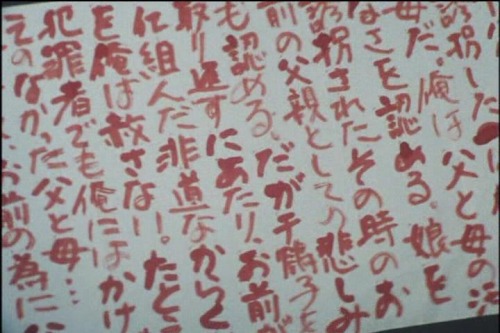 誘拐した
母だ。俺は父と母の浅
なさを認める。娘を
誘拐されたその時のお
前の父親としての悲しみ
も認める。だが千鶴子を
取り返すにあたり、お前が
仕組んだ非道なからく
を俺は赦さない。たと
犯罪者でも俺にはかけ
えのなかった父と母…
お前の為に